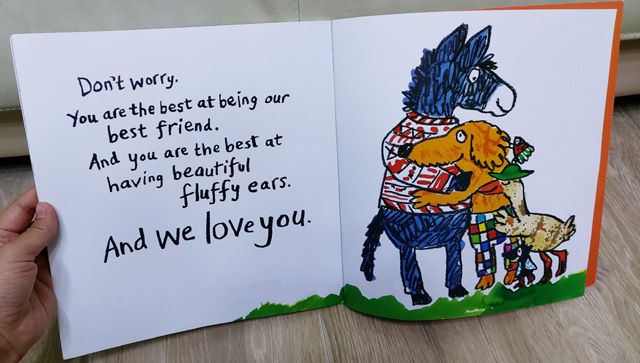 Don't worry.
You are the best at being our
best friend.
And you are the best at
having beautiful
fluffy ears.
And we love you.